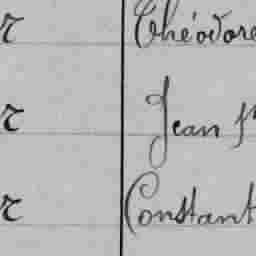 r Théodore
r Jean
r Constant